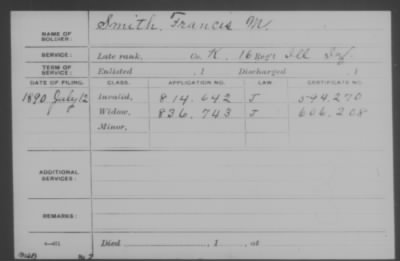 NAME OF SOLDIER: Smith, Francis M.
SERVICE: Late rank, Co. K, 16 Reg't Ill Inf.
TERM OF SERVICE: Enlisted , 1 Discharged 1
DATE OF FILING. CLASS. APPLICATION NO. LAW. CERTIFICATE NO.
1890, July 12 Invalid, 814.642 J 544,270
Widow, 836,743 J 606,208
Minor,
ADDITIONAL SERVICES:
REMARKS:
Died , 1 , at